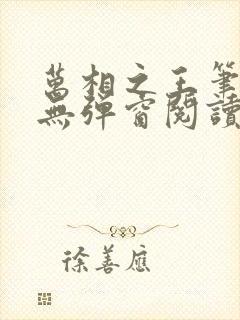 萬相之王筆
無彈窗閱讀
徐善應